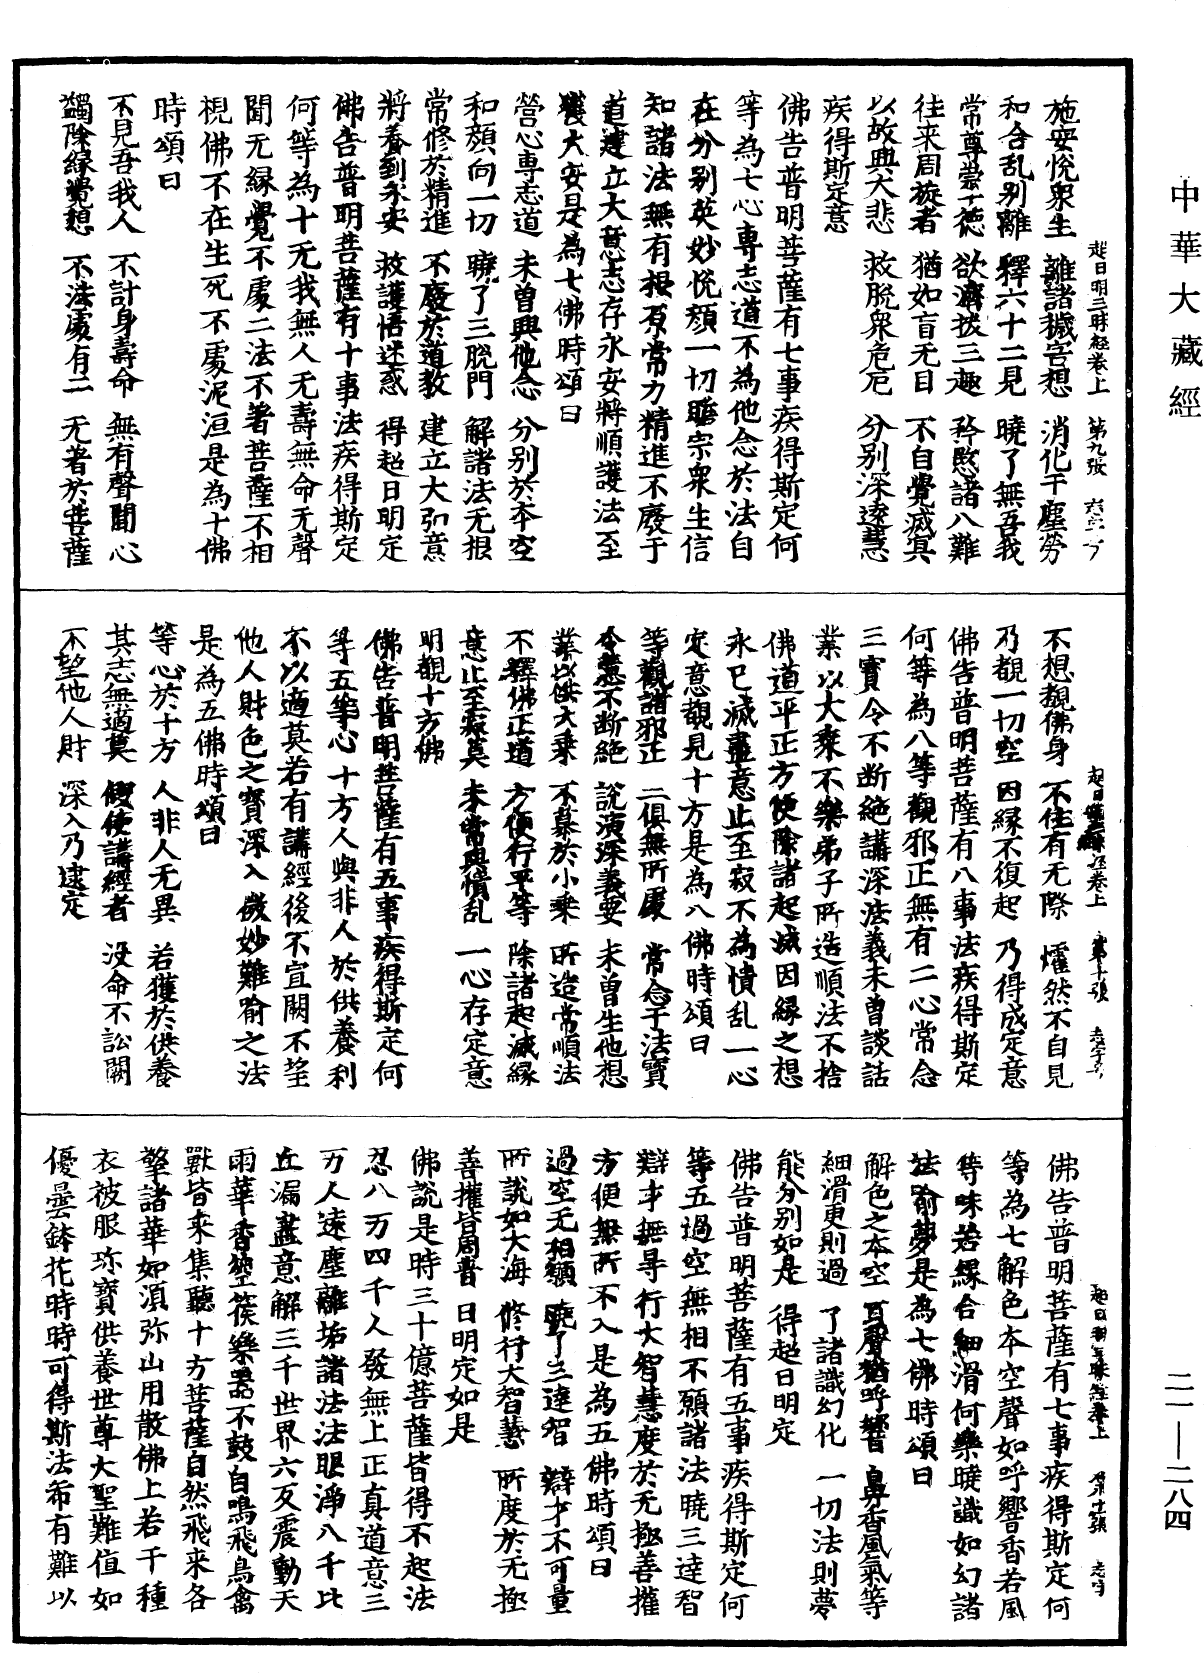 中華大藏經
超日明三昧經卷上　第九張
施安悅衆生　離諸穢害想　消化千塵勞
和合乱别離　釋六十二見　曉了無吾我
常尊崇一徳　欲濟拔三趣　矜愍諸八難
往来周旋者　猶如盲无目　不自覺滅其
以故興大悲　救脱衆危厄　分别深遠慧
疾得斯定意
佛告普明菩薩有七事疾得斯定何
等為七心専志道不為他念於法自
在分别英妙悦顔一切瞻宗衆生信
知諸法無有根原常力精進不廢于
道建立大意志存永安將順護法至
獲大安是為七佛時頌曰
營心專志道　未曾興他念　分别於夲空
和顔向一切　曉了三脱門　解諸法无根
常修於精進　不廢於道教　建立大弘意
將養到永安　救護悟迷惑　得超日明定
佛告普明菩薩有十事法疾得斯定
何等為十无我無人无壽無命无聲
聞无緣覺不處二法不著菩薩不相
視佛不在生死不處泥洹是為十佛
時頌曰
不見吾我人　不計身壽命　無有聲聞心
蠲除緣覺想　不法處有二　无著於菩薩
不想觀佛身　不住有无際　爀然不自見
乃觀一切空　因緣不復起　乃得成定意
佛告普明菩薩有八事法疾得斯定
何等為八等觀邪正無有二心常念
三寶令不断絶講深法義未曾談話
業以大乘不樂弟子所造順法不捨
佛道平正方便除諸起滅因緣之想
永已滅盡意止至寂不為憒乱一心
定意覩見十方是為八佛時頌曰
等觀諸邪正　二俱無所處　常念于法寶
令意不断絶　說演深義要　未曾生他想
業以供大乘　不慕於小乘　所造常順法
不釋佛正道　方便行平等　除諸起滅緣
意止至寂莫　未常興憒乱　一心存定意
明觀十方佛
佛告普明菩薩有五事疾得斯定何
等五等心十方人與非人於供養利
不以適莫若有講經後不宣闕不望
他人財色之寶深入微妙難喻之法
是為五佛時頌曰
等心於十方　人非人无異　若獲於供養
其志無適莫　假使講經者　没命不訟闕
不望他人財　深入乃逮定
佛告普明菩薩有七事疾得斯定何
等為七解色本空聲如呼響香若風
等味若緣合細滑何樂曉識如幻諸
法喻夢是為七佛時頌曰
解色之本空　耳聲猶呼響　鼻香風氣等
細滑更則過　了諸識幻化　一切法則夢
能分别如是　得超日明定
佛告普明菩薩有五事疾得斯定何
等五過空無相不願諸法曉三逹智
辯才無㝵行大智慧度於无極善攉
方便無所不入是為五佛時頌曰
過空无相願　曉了三逹智　辯才不可量
所說如大海　修行大智慧　所度於无極
善攉皆周普　日明定如是
佛說是時三十億菩薩皆得不起法
忍八万四千人發無上正真道意三
万人遠塵離垢諸法法眼淨八千比
丘漏盡意解三千世界六反震動天
雨華香箜篌樂器不鼓自鳴飛鳥禽
獸皆来集聽十方菩薩自然飛来各
擎諸華如湏弥山用散佛上若千種
衣被服珎寶供養世尊大聖難值如
優曇鉢花時時可得斯法希有難以
二一—二八四